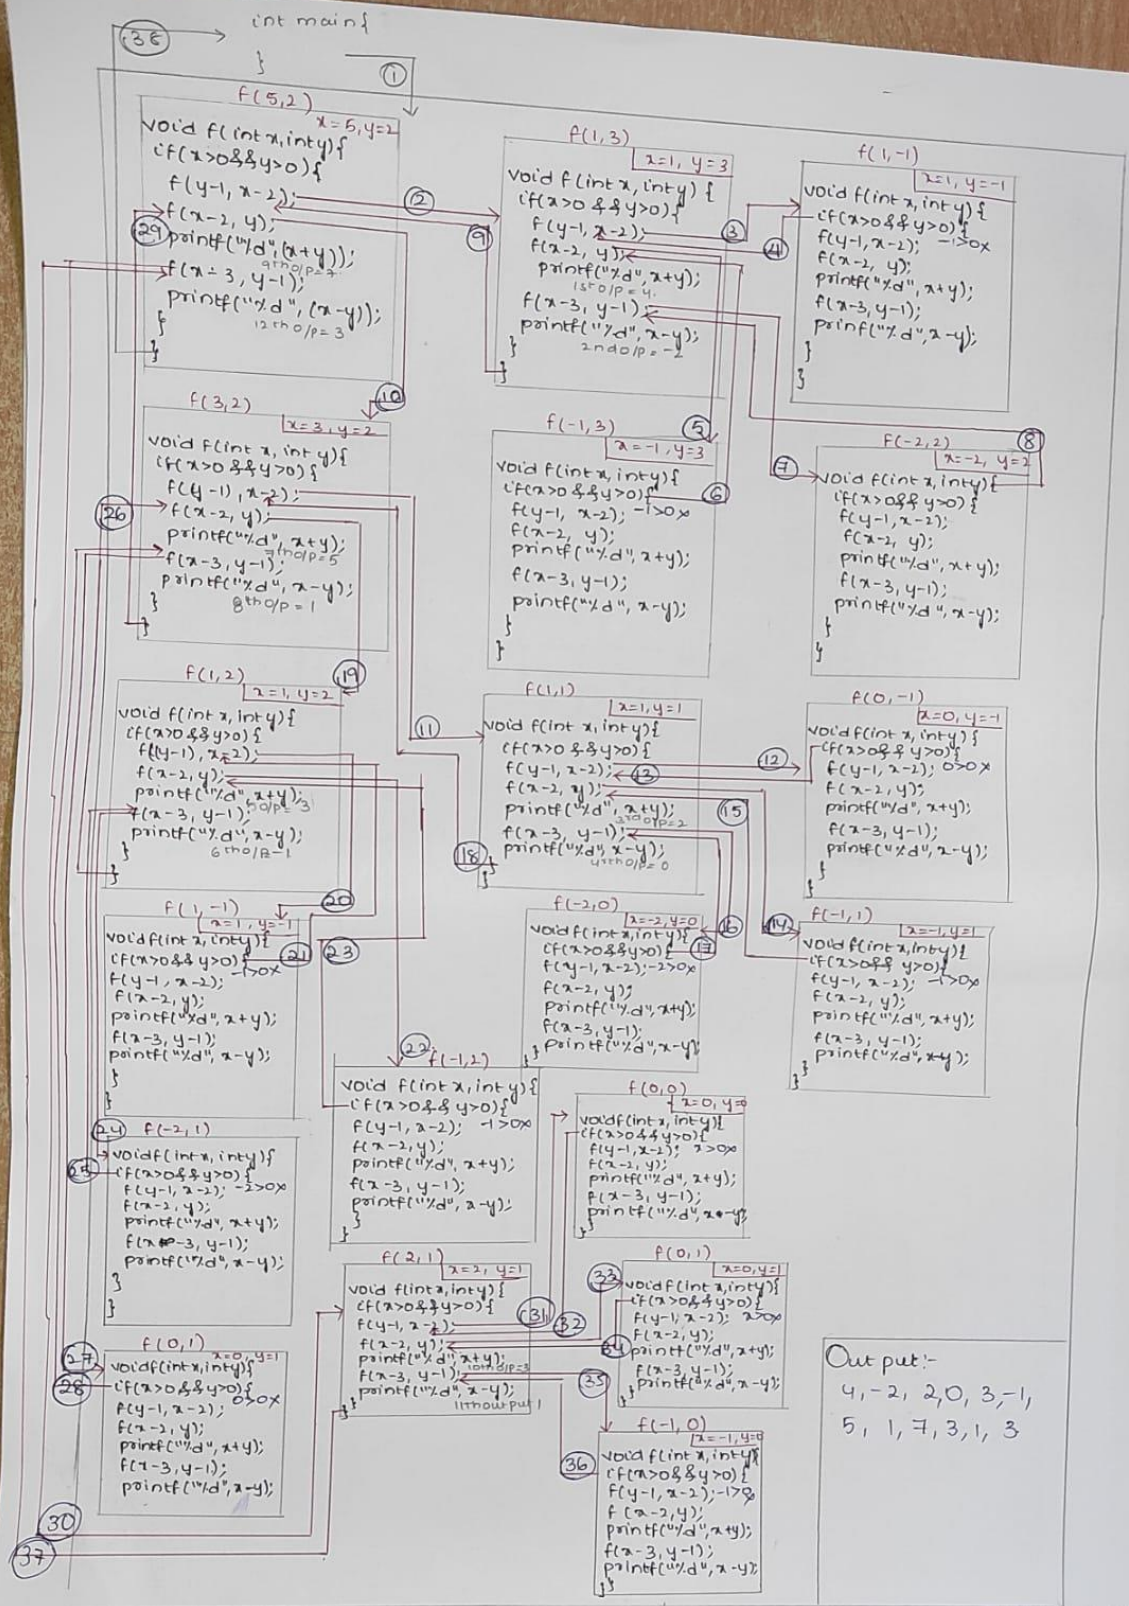 int main{
}
38
1
f(5,2)
x=5,y=2
void f(int x,int y){
if(x>0&&y>0){
f(y-1, x-2);
f(x-2, y);
printf("%d",(x+y));
9th o/p=7
f(x-3, y-1);
printf("%d", (x-y));
12th o/p=3
}
}
2
9
29
10
f(1,3)
x=1, y=3
void f(int x, int y) {
if(x>0 && y>0){
f(y-1, x-2);
f(x-2, y);
printf("%d", x+y);
1st o/p=4.
f(x-3, y-1);
printf("%d", x-y);
2nd o/p=-2
}
}
3
4
f(1,-1)
x=1, y=-1
void f(int x, int y){
if(x>0&&y>0){
f(y-1, x-2); -1>0x
f(x-2, y);
printf("%d", x+y);
f(x-3, y-1);
prinf("%d", x-y);
}
}
f(3,2)
x=3, y=2
void f(int x, int y){
if(x>0 &&y>0){
f(y-1), x-2);
f(x-2, y);
printf("%d", x+y);
7th o/p=5
f(x-3, y-1);
printf("%d", x-y);
8th o/p=1
}
}
26
5
6
f(-1,3)
x=-1, y=3
void f(int x, int y){
if(x>0&&y>0){
f(y-1, x-2); -1>0x
f(x-2, y);
printf("%d", x+y);
f(x-3, y-1);
printf("%d", x-y);
}
}
7
8
f(-2,2)
x=-2, y=2
void f(int x, int y){
if(x>0&&y>0){
f(y-1, x-2);
f(x-2, y);
printf("%d", x+y);
f(x-3, y-1);
printf("%d", x-y);
}
}
19
f(1,2)
x=1, y=2
void f(int x, int y){
if(x>0 &&y>0){
f((y-1), x-2);
f(x-2, y);
printf("%d", x+y);
o/p=3
f(x-3, y-1);
printf("%d", x-y);
6th o/p-1
}
}
11
18
f(1,1)
x=1, y=1
void f(int x, int y){
if(x>0 &&y>0){
f(y-1, x-2);
f(x-2, y);
printf("%d", x+y);
3rd o/p=2
f(x-3, y-1);
printf("%d", x-y);
o/p=0
}
12
13
14
15
f(0,-1)
x=0, y=-1
void f(int x, int y){
if(x>0&&y>0){
f(y-1, x-2); 0>0x
f(x-2, y);
printf("%d", x+y);
f(x-3, y-1);
printf("%d", x-y);
}
}
20
21
23
f(1,-1)
x=1, y=-1
void f(int x, int y){
if(x>0&&y>0){
-1>0x
f(y-1, x-2);
f(x-2, y);
printf("%d", x+y);
f(x-3, y-1);
printf("%d", x-y);
}
}
16
17
f(-2,0)
x=-2, y=0
void f(int x, int y){
if(x>0&&y>0){
f(y-1, x-2); -2>0x
f(x-2, y);
printf("%d", x+y);
f(x-3, y-1);
printf("%d", x-y
}
f(-1,1)
x=-1, y=1
void f(int x, int y){
if(x>0&& y>0){
f(y-1, x-2); -1>0x
f(x-2, y);
printf("%d", x+y);
f(x-3, y-1);
printf("%d", x-y);
}
}
22
f(-1,2)
void f(int x, int y){
if(x>0&&y>0){
f(y-1, x-2); -1>0x
f(x-2, y);
printf("%d", x+y);
f(x-3, y-1);
printf("%d", x-y);
}
}
f(0,0)
x=0, y=0
void f(int x, int y){
if(x>0&&y>0){
f(y-1, x-2);
f(x-2, y);
printf("%d", x+y);
f(x-3, y-1);
printf("%d", x-y);
}
}
24
25
f(-2,1)
void f(int x, int y){
if(x>0&&y>0){
f(y-1, x-2); -2>0x
f(x-2, y);
printf("%d", x+y);
f(x-3, y-1);
printf("%d", x-y);
}
}
f(2,1)
x=2, y=1
void f(int x, int y){
if(x>0&&y>0){
f(y-1, x-2);
f(x-2, y);
printf("%d", x+y);
10th o/p=3
f(x-3, y-1);
printf("%d", x-y);
11th output 1
}
31
32
33
34
35
36
f(0,1)
x=0, y=1
void f(int x, int y){
if(x>0&&y>0){
f(y-1, x-2);
f(x-2, y);
printf("%d", x+y);
f(x-3, y-1);
printf("%d", x-y);
}
27
28
f(0,1)
x=0, y=1
void f(int x, int y){
if(x>0&&y>0){
0>0x
f(y-1, x-2);
f(x-2, y);
printf("%d", x+y);
f(x-3, y-1);
printf("%d", x-y);
f(-1,0)
x=-1, y=0
void f(int x, int y){
if(x>0&&y>0){
f(y-1, x-2);
f(x-2, y);
printf("%d", x+y);
f(x-3, y-1);
printf("%d", x-y);
}
30
37
Out put:-
4, -2, 2, 0, 3, -1,
5, 1, 7, 3, 1, 3